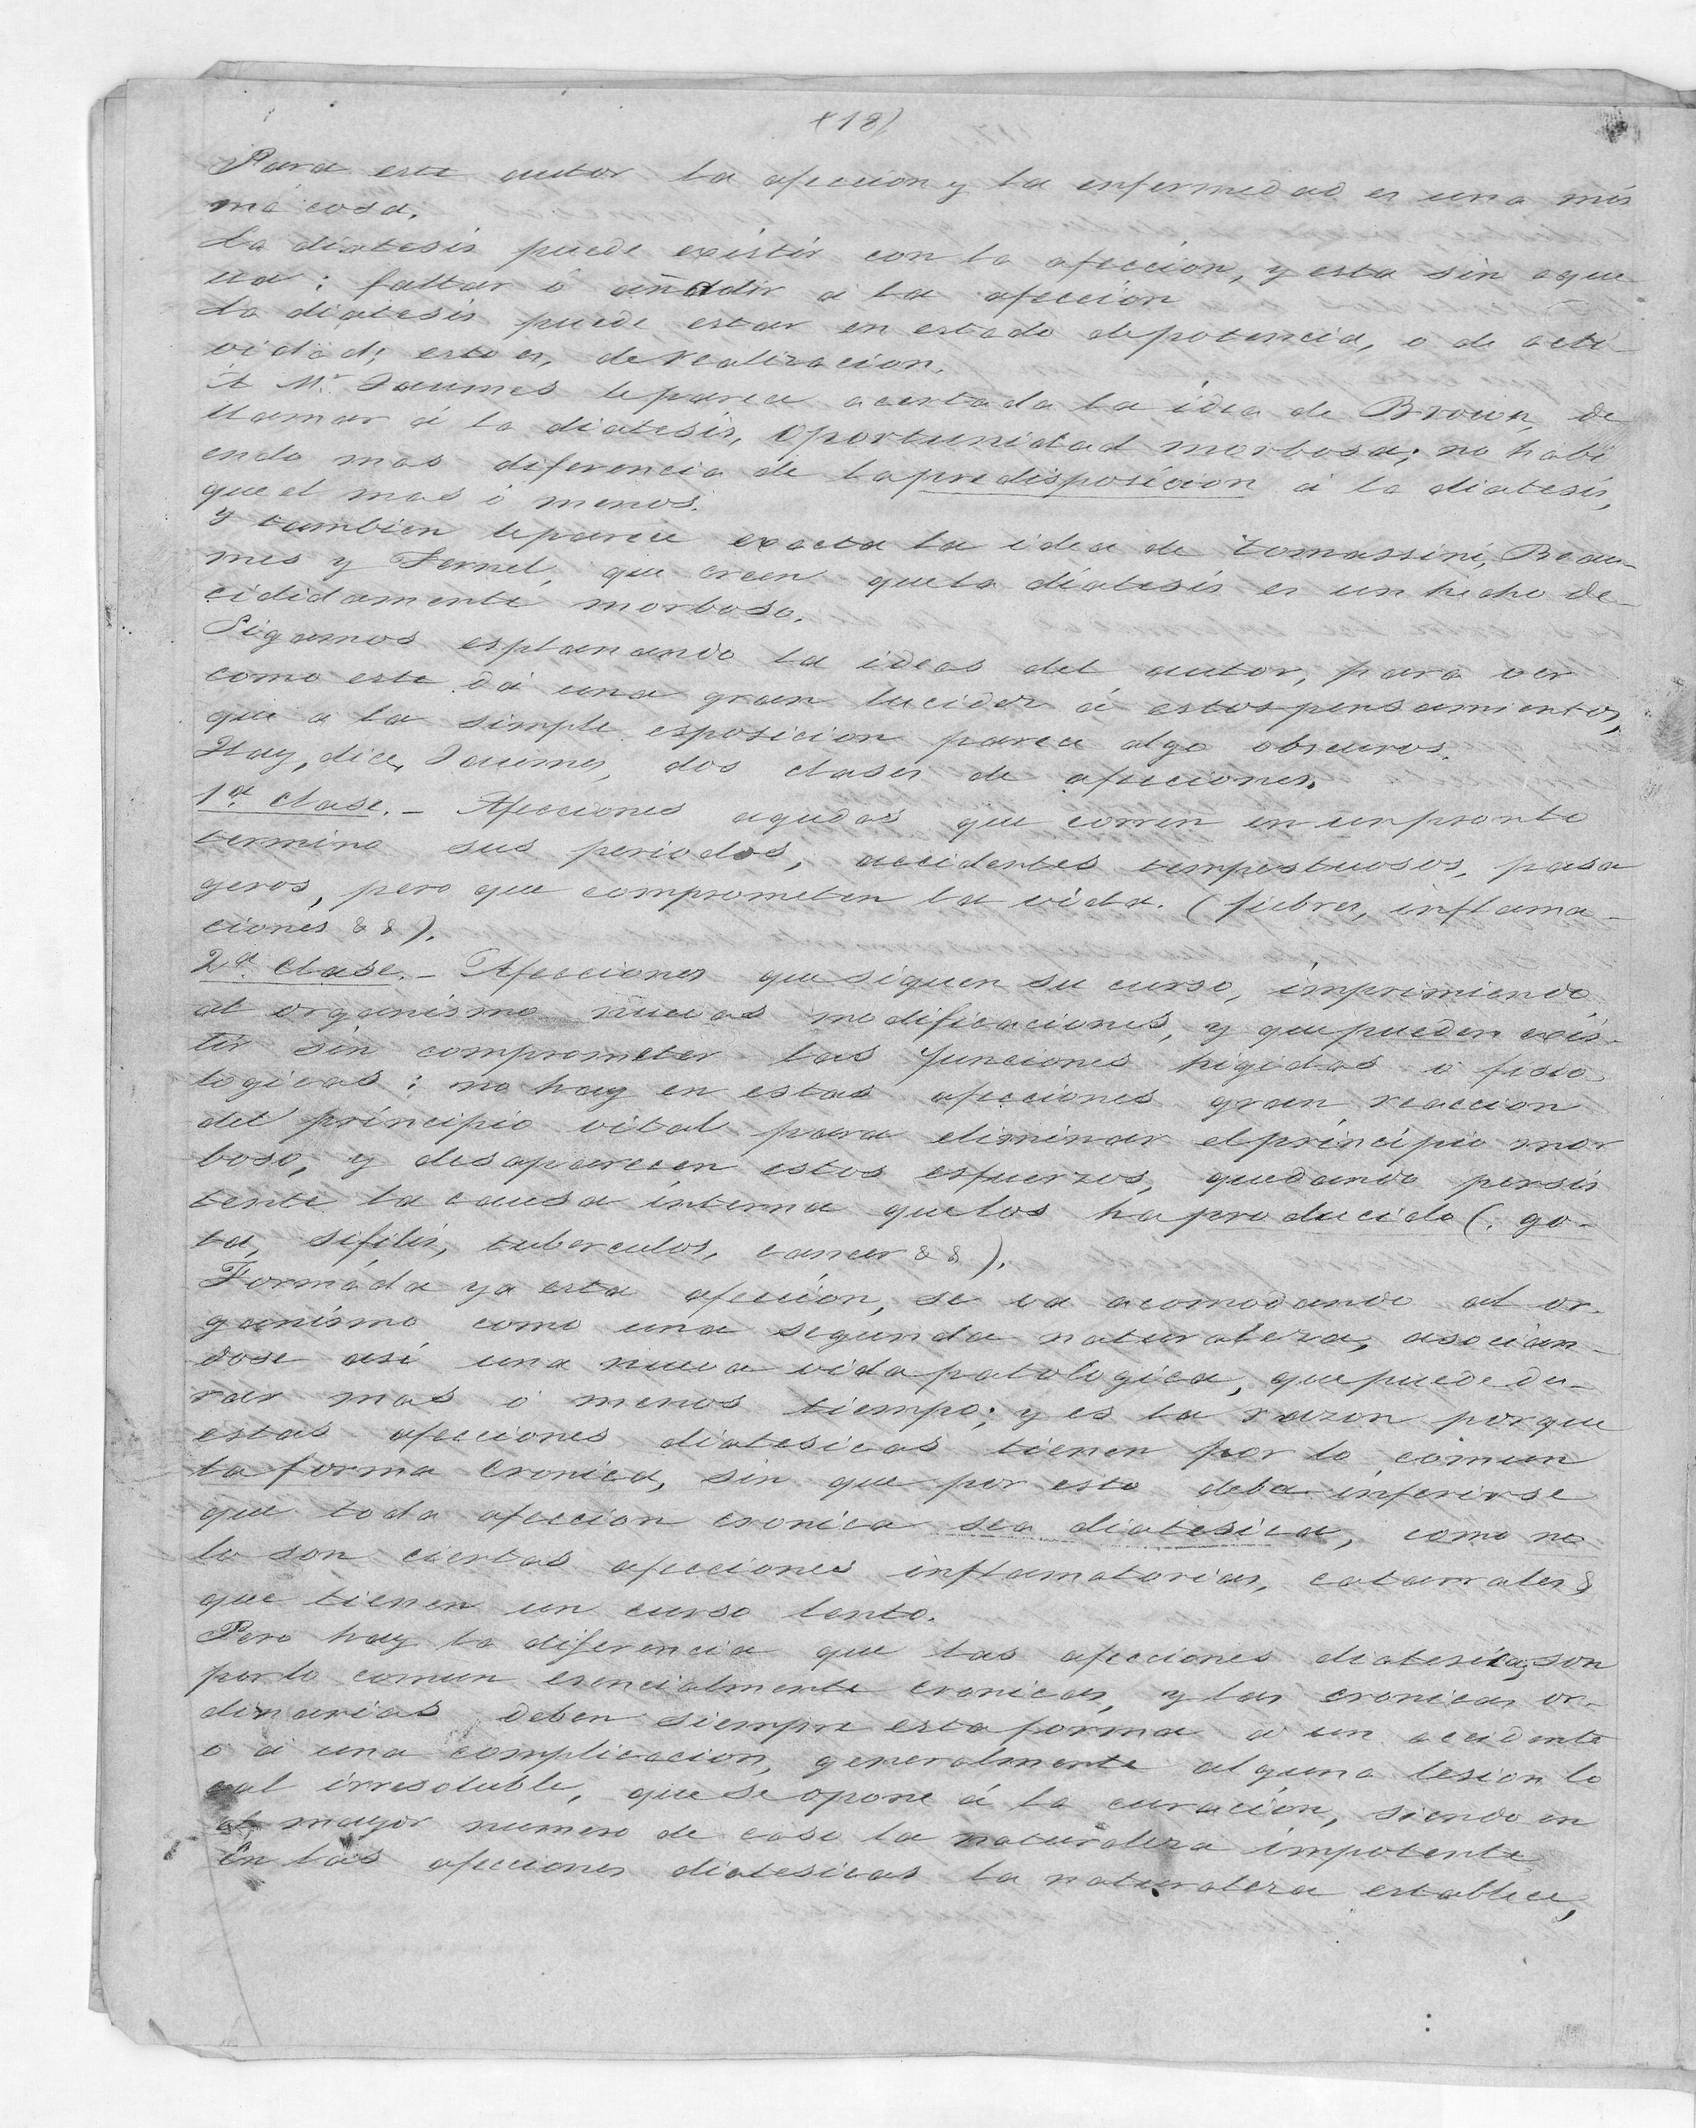 (18)
Para este autor la afeccion y la enfermedad es una mis
ma cosa.
La diatesis puede existir con la afeccion, y esta sin aque
lla: faltar ó añadir a la afeccion
La diatesis puede estar en estado de potencia, o de acti
vidad; esto es, de realizacion.
A Mr. Jaumes le parece acertada la idea de Brown, de
llamar á la diatesis, oportunidad morbosa; no habi
endo mas diferencia de la predisposicion á la diatesis,
que el mas ó menos.
Y tambien le parece exacta la idea de Tomassini, Beau-
mes y Fernel, que creen que la diatesis es un hecho de-
cididamente morboso.
Sigamos esplanando la ideas del autor, para ver
como este dá una gran lucidez á estos pensamientos,
que a la simple esposicion parece algo obscuros.
Hay, dice, Jaumes, dos clases de afecciones.
1ª clase.- Afecciones agudas que corren en un pronto
termino sus periodos, accidentes tempestuosos, pasa
geros, pero que comprometen la vida. (fiebres, inflama-
ciones & &).
2ª clase.- Afecciones que siguen su curso, imprimiendo
al organismo nuevas modificaciones, y que pueden exis-
tir sin comprometer las funciones higidas ó fisio-
logicas: no hay en estas afecciones gran reaccion
del principio vital para eliminar el principio mor
boso, y desaparecen estos esfuerzos, quedando persis
tente la causa interna que los ha producido (. go-
ta, sifilis, tuberculos, cancer & &).
Formada ya esta afeccion, se va acomodando al or-
ganismo como una segunda naturaleza, asocian-
dose asi una nueva vida patologica, que puede du-
rar mas ó menos tiempo; y es la razon porque
estas afecciones diatesicas tienen por lo comun
la forma cronica, sin que por esto deba inferirse
que toda afeccion cronica sea diatesica, como no
lo son ciertas afecciones inflamatorias, catarrales &
que tienen un curso lento.
Pero hay la diferencia que las afecciones diatesicas son
por lo comun esencialmente cronicas, y las cronicas or-
dinarias deben siempre esta forma a un accidente
o á una complicacion, generalmente alguna lesion lo
cal irresoluble, que se opone á la curacion, siendo en
el mayor numero de caso la naturaleza impotente
En las afecciones diatesicas la naturaleza establece,